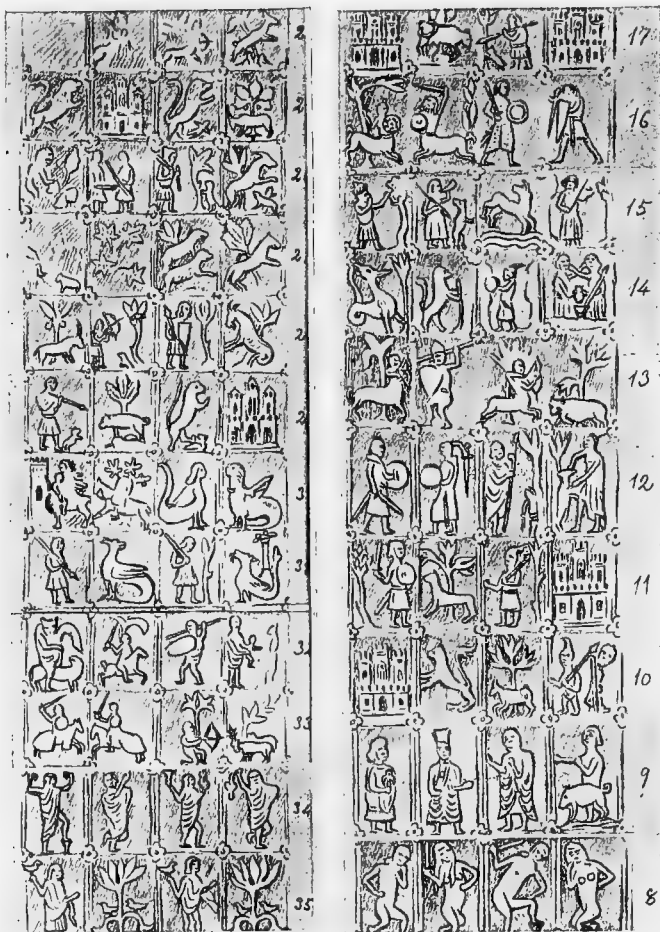 2
2
2
2
2
2
3
3
3
33
34
35
17
16
15
14
13
12
11
10
9
8